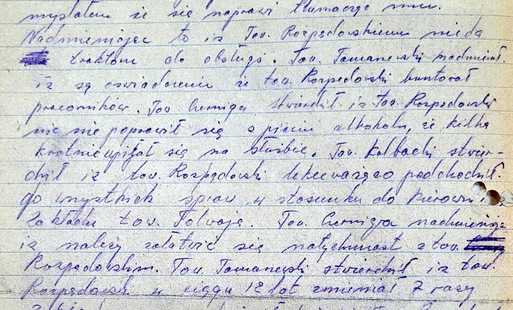 myślałem że się naprawi tłumacząc mu.
Nadmieniając to iż Tow. Rozpędowskiemu nie da
traktoru do obsługi. Tow. Tomanewski nadmienił
iż są oświadczenia że tow. Rozpędowski buntował
pracowników. Tow Czemiga stwierdził iż tow. Rozpędowski
nic nie poprawił się o piciu alkoholu, że kilka
krotnie upijał się na służbie. Tow. Kolbacki stwier-
dził iż tow. Rozpędowski lekceważąco podchodził
do wszystkich spraw w stosunku do kierownika
Zakładu tow.
Tow. Czemiga nadmienia
iż należy załatwić się natychmiast z tow.
Rozpędowskim. Tow. Tomanewski stwierdził iż tow.
Rozpędowski w ciągu 12 lat zmieniał 7 razy